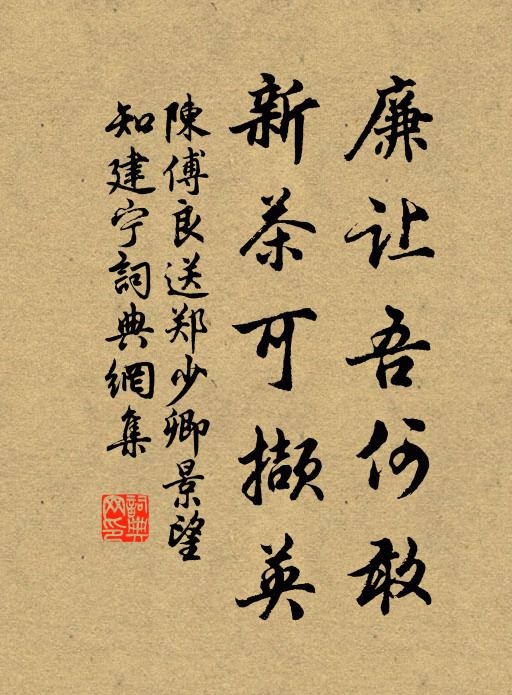 廉让吾何敢
新茶可撷英
陳傅良送郑少卿景望
知建宁詞典網集
詞典網印